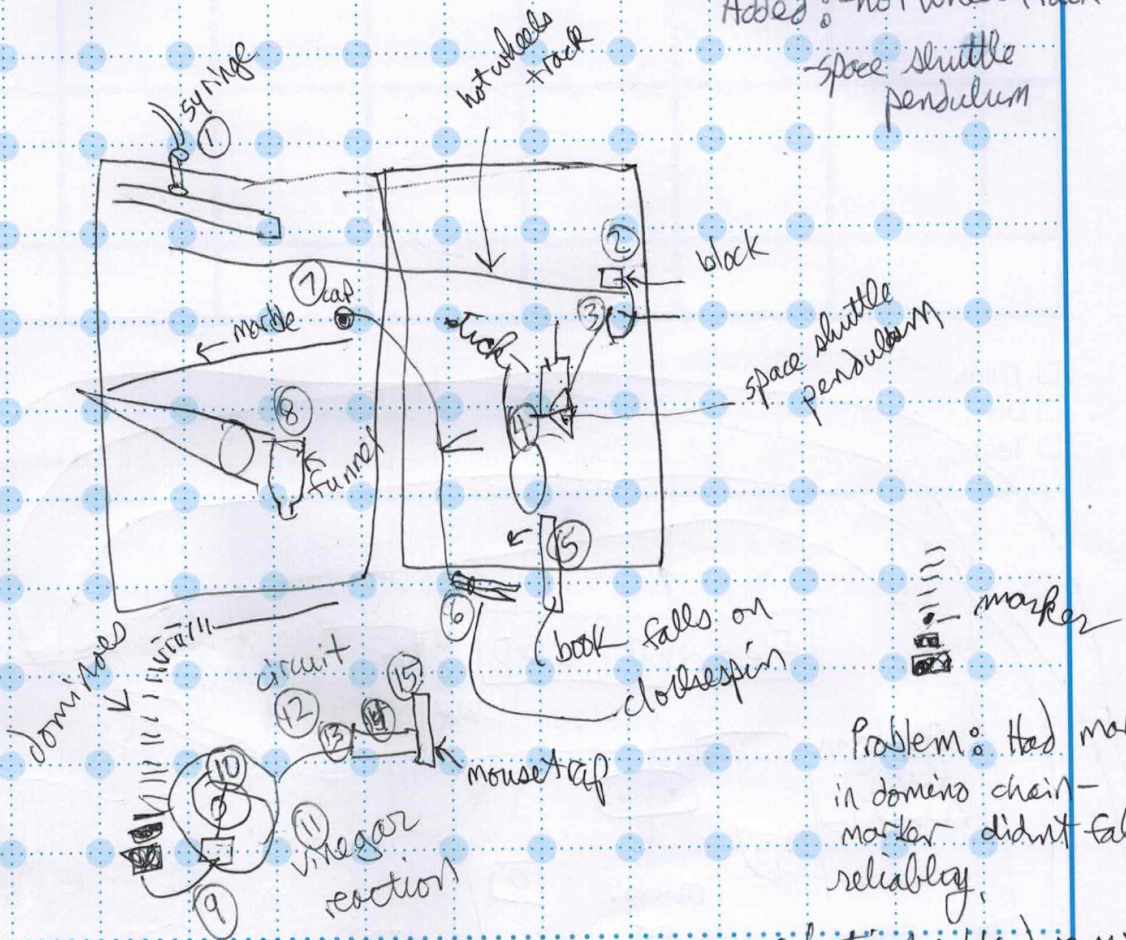 Added:
-space shuttle
pendulum
syringe
①
hotwheels
track
②
block
③
⑦
cap
marble
space shuttle
pendulum
⑧
funnel
⑤
⑥
book falls on
clothespin
marker
dominoes
circuit
⑫
⑬
⑭
⑮
mousetrap
⑩
⑪
vinegar
reaction
⑨
Problem: Had
in domino chain-
marker didn't
reliably.